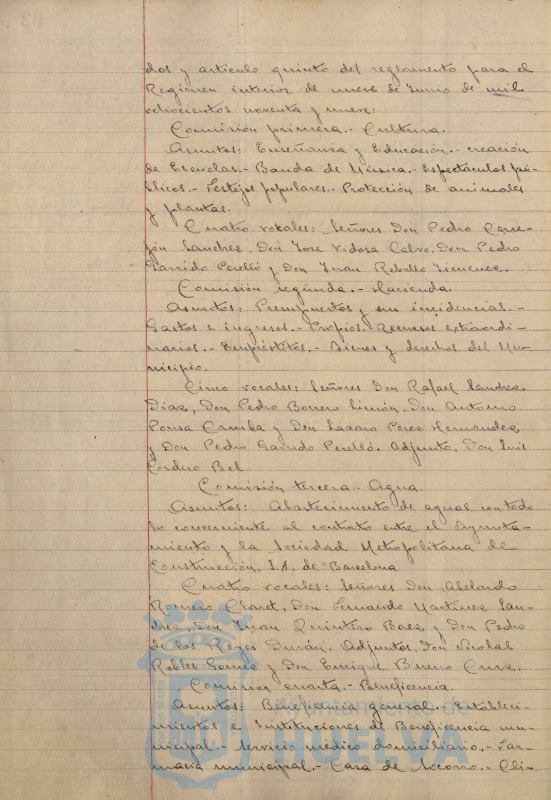 dos y articulo quinto del reglamento para el
Regimen interior de nueve de Junio de mil
ochocientos noventa y nueve:
Comisión primera.- Cultura.
Asuntos: Enseñanza y Educación.- creación
de Escuelas.- Banda de Música.- Espectáculos pú-
blicos.- Festejos populares.- Protección de animales
y plantas.
Cuatro vocales: Señores Don Pedro Cerre-
jón Sanchez, Don Jose Vidosa Calvo, Don Pedro
Garrido Perelló y Don Juan Rebollo Jimenez.
Comisión segunda.- Hacienda.
Asuntos: Presupuestos y sus incidencias.-
Gastos e ingresos.- Propios.- Recursos extraordi-
narios.- Empréstitos.- Bienes y derechos del Mu-
nicipio.
Cinco vocales: Señores Don Rafael Sanchez
Diaz, Don Pedro Borrero Limón, Don Antonio
Ponsa y Don Lázaro Perez Hernandez
y Don Pedro Garrido Perelló. Adjunto, Don Luis
Cordero Bel.
Comisión tercera.- Agua
Asuntos: Abastecimiento de aguas con todo
lo concerniente al contrato entre el Ayunta-
miento y la Sociedad Metropolitana de
Construcción, S.A. de Barcelona
Cuatro vocales: Señores Don Abelardo
Romero Claret, Don Fernando Martinez San-
chez, Don Juan Quintero Baez y Don Pedro
de los Reyes Durán. Adjuntos, Don Nicolás
Robles Gomez y Don Enrique Bueno Cruz.
Comision cuarta.- Beneficencia.
Asuntos: Beneficencia general.- Estableci-
mientos e Instituciones de Beneficencia mu-
nicipal.- Servicio médico domiciliario.- Far-
macia municipal.- Casa de Socorro.- Cli-
HUELVA